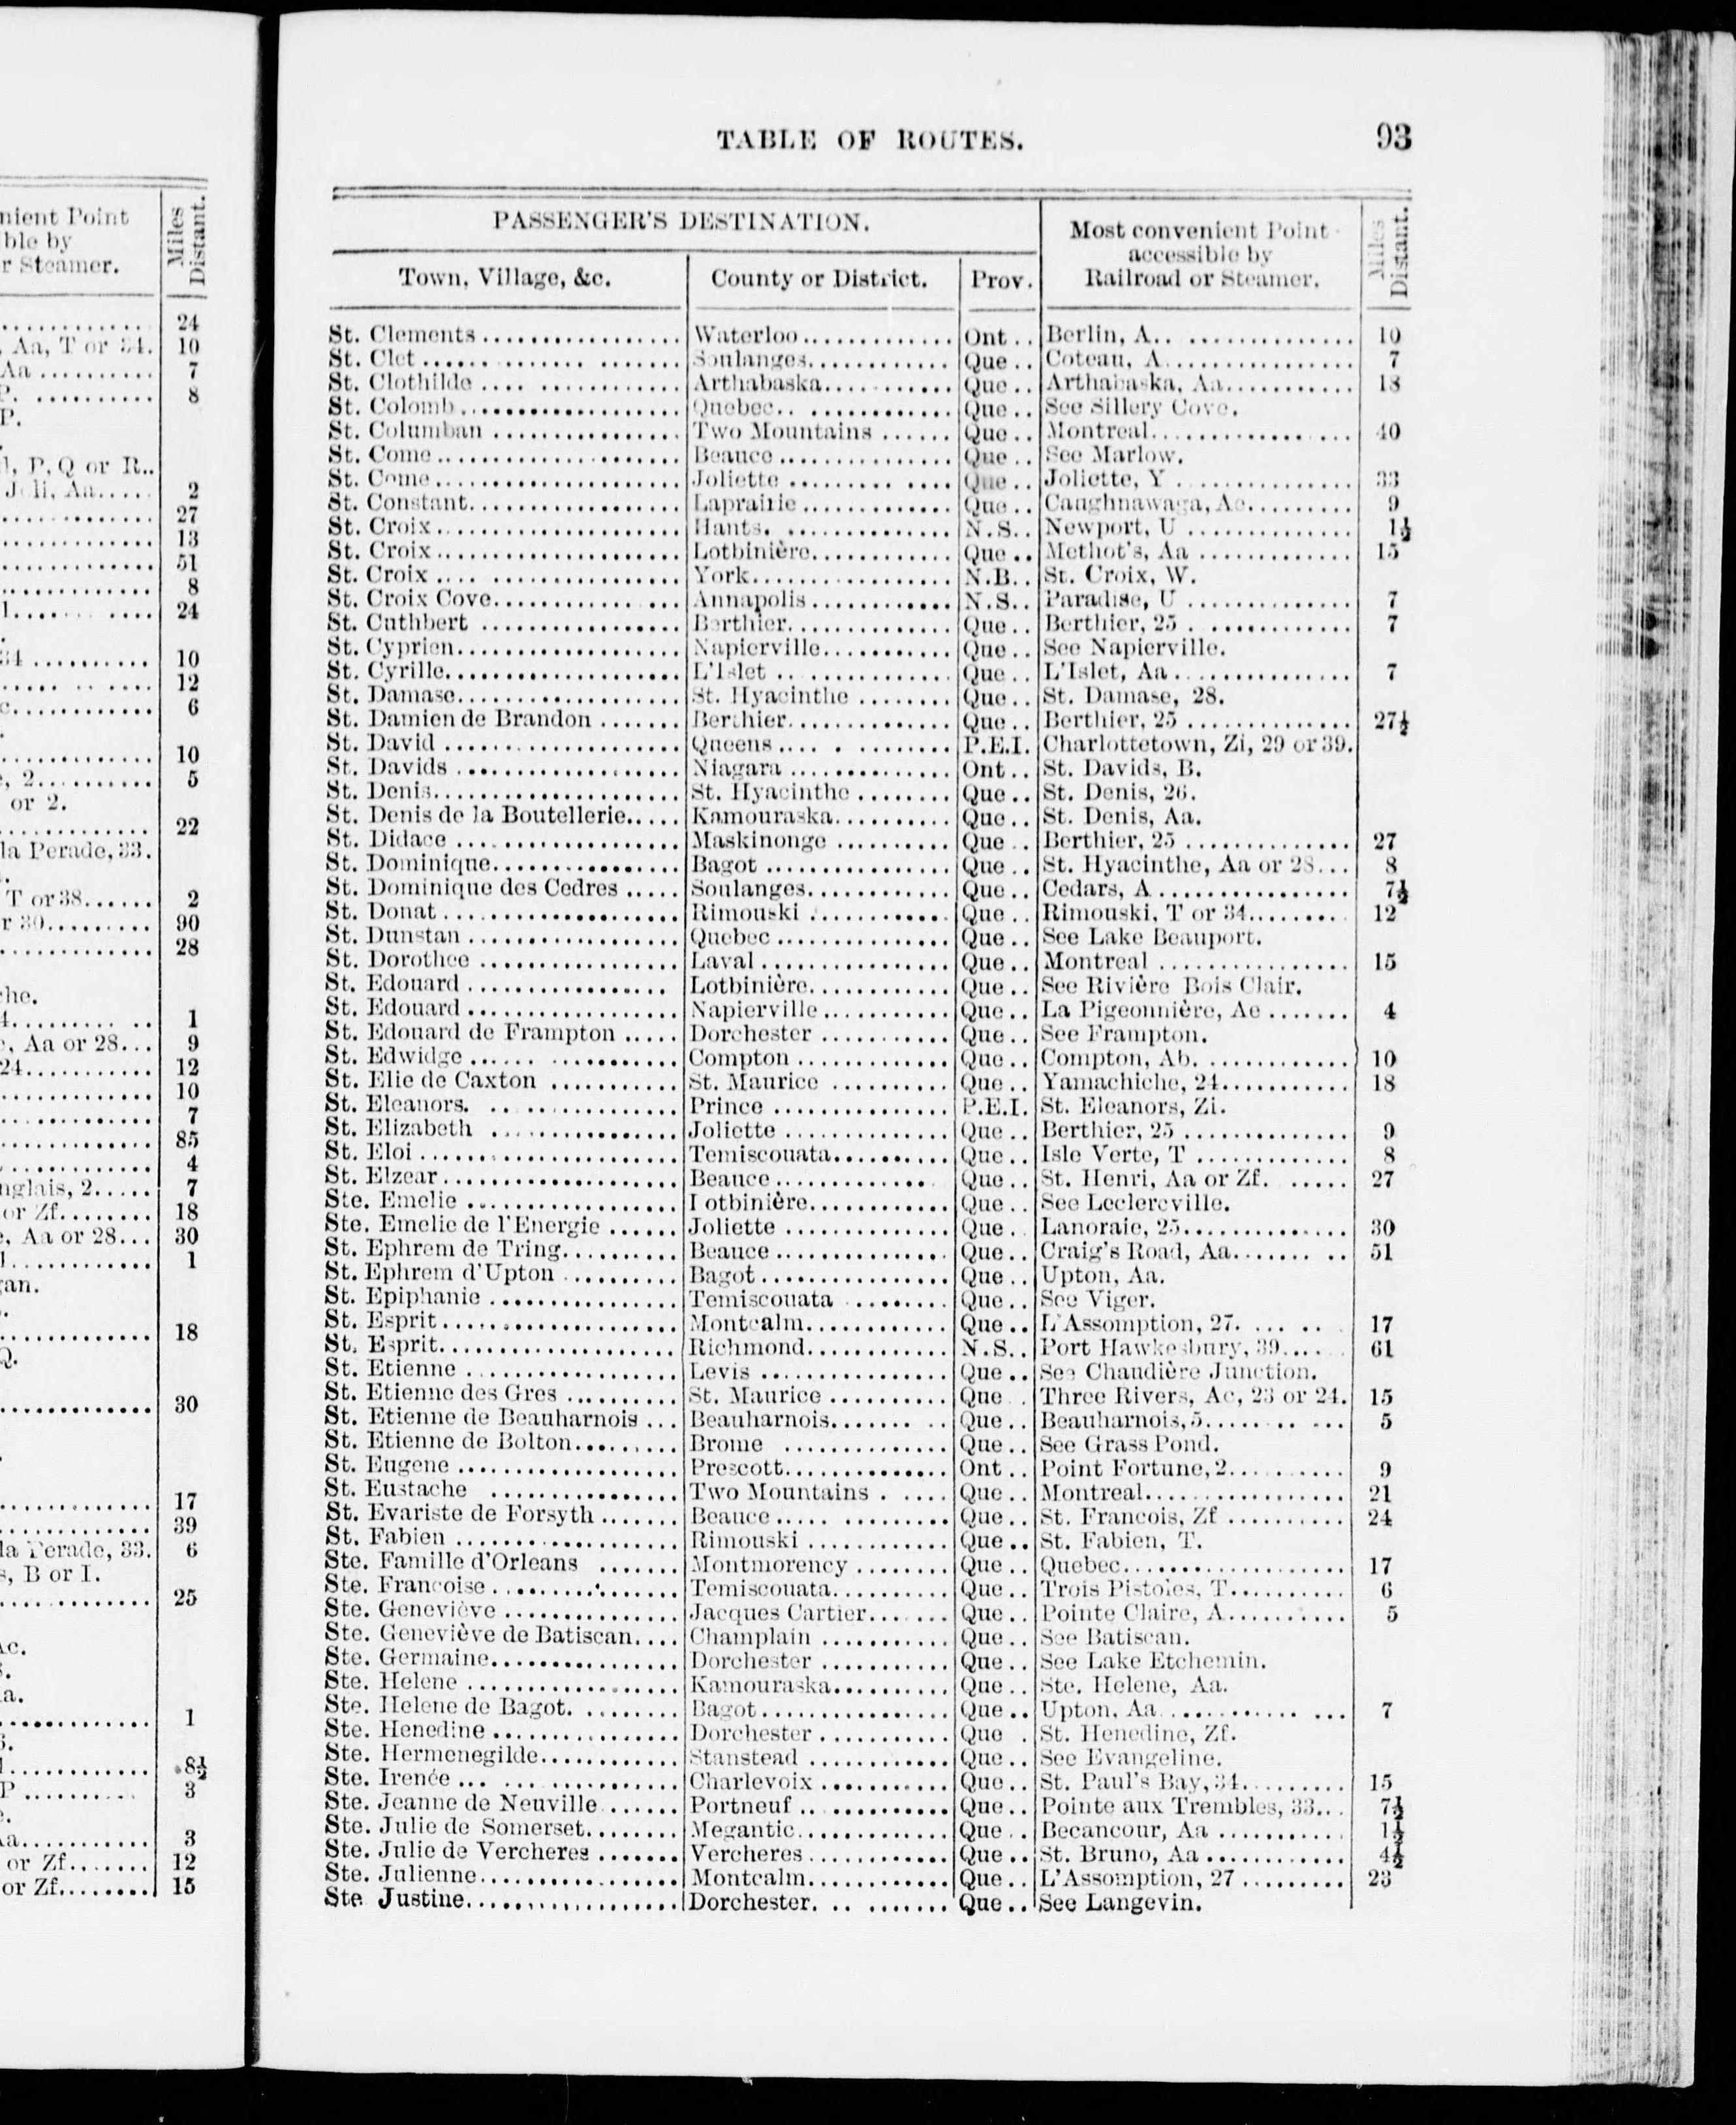 nient Point
ble by
r Steamer.
Miles
Distant.
24
, Aa, T or 34. 10
Aa .......... 7
P. .......... 8
P.
P, Q or R..
Joli, Aa..... 2
27
13
51
8
24
34 .......... 10
12
6
10
, 2.......... 5
or 2.
22
la Perade, 33.
T or 38...... 2
r 30.......... 90
28
che.
1
, Aa or 28... 9
24........... 12
10
7
85
4
nglais, 2..... 7
or Zf......... 18
, Aa or 28... 30
1
gan.
18
Q.
30
17
39
la Perade, 33. 6
s, B or I.
25
Ac.
a.
1
8½
P .......... 3
3
or Zf....... 12
or Zf........ 15
TABLE OF ROUTES. 93
PASSENGER'S DESTINATION.
Most convenient Point
accessible by
Railroad or Steamer.
Miles
Distant.
Town, Village, &c. County or District. Prov.
St. Clements .......... Waterloo .......... Ont.. Berlin, A.......... 10
St. Clet .......... Soulanges.......... Que.. Coteau, A.......... 7
St. Clothilde .......... Arthabaska.......... Que.. Arthabaska, Aa.......... 18
St. Colomb.......... Quebec.......... Que.. See Sillery Cove.
St. Columban .......... Two Mountains ...... Que.. Montreal.......... 40
St. Come.......... Beauce.......... Que.. See Marlow.
St. Come.......... Joliette .......... Que.. Joliette, Y .......... 33
St. Constant.......... Laprairie.......... Que.. Caughnawaga, Ac.......... 9
St. Croix.......... Hants.......... N.S.. Newport, U .......... 1½
St. Croix.......... Lotbinière.......... Que.. Methot's, Aa .......... 15
St. Croix .......... York.......... N.B.. St. Croix, W.
St. Croix Cove.......... Annapolis.......... N.S.. Paradise, U .......... 7
St. Cuthbert .......... Berthier.......... Que.. Berthier, 25 .......... 7
St. Cyprien.......... Napierville.......... Que.. See Napierville.
St. Cyrille.......... L'Islet .......... Que.. L'Islet, Aa .......... 7
St. Damase.......... St. Hyacinthe ........ Que.. St. Damase, 28.
St. Damien de Brandon ....... Berthier.......... Que.. Berthier, 25 .......... 27½
St. David .......... Queens .......... P.E.I. Charlottetown, Zi, 29 or 39.
St. Davids .......... Niagara .......... Ont.. St. Davids, B.
St. Denis.......... St. Hyacinthe ........ Que.. St. Denis, 26.
St. Denis de la Boutellerie..... Kamouraska.......... Que.. St. Denis, Aa.
St. Didace .......... Maskinonge .......... Que.. Berthier, 25 .......... 27
St. Dominique.......... Bagot .......... Que.. St. Hyacinthe, Aa or 28... 8
St. Dominique des Cedres ..... Soulanges.......... Que.. Cedars, A.......... 7½
St. Donat .......... Rimouski .......... Que.. Rimouski, T or 34......... 12
St. Dunstan .......... Quebec .......... Que.. See Lake Beauport.
St. Dorothee .......... Laval .......... Que.. Montreal .......... 15
St. Edouard .......... Lotbinière.......... Que.. See Rivière Bois Clair.
St. Edouard .......... Napierville .......... Que.. La Pigeonnière, Ac ....... 4
St. Edouard de Frampton ..... Dorchester .......... Que.. See Frampton.
St. Edwidge .......... Compton .......... Que.. Compton, Ab. .......... 10
St. Elie de Caxton .......... St. Maurice .......... Que.. Yamachiche, 24.......... 18
St. Eleanors. .......... Prince .......... P.E.I. St. Eleanors, Zi.
St. Elizabeth .......... Joliette .......... Que.. Berthier, 25 .......... 9
St. Eloi .......... Temiscouata.......... Que.. Isle Verte, T .......... 8
St. Elzear.......... Beauce .......... Que.. St. Henri, Aa or Zf. ...... 27
Ste. Emelie .......... Lotbinière.......... Que.. See Leclercville.
Ste. Emelie de l'Energie ...... Joliette .......... Que.. Lanoraie, 25.......... 30
St. Ephrem de Tring.......... Beauce .......... Que.. Craig's Road, Aa.......... 51
St. Ephrem d'Upton .......... Bagot.......... Que.. Upton, Aa.
St. Epiphanie .......... Temiscouata ......... Que.. See Viger.
St. Esprit.......... Montcalm.......... Que.. L'Assomption, 27. ...... 17
St. Esprit.......... Richmond.......... N.S.. Port Hawkesbury, 39...... 61
St. Etienne .......... Levis .......... Que.. See Chaudière Junction.
St. Etienne des Gres .......... St. Maurice .......... Que.. Three Rivers, Ac, 23 or 24. 15
St. Etienne de Beauharnois ... Beauharnois.......... Que.. Beauharnois, 5.......... 5
St. Etienne de Bolton.......... Brome .......... Que.. See Grass Pond.
St. Eugene .......... Prescott.......... Ont.. Point Fortune, 2.......... 9
St. Eustache .......... Two Mountains ...... Que.. Montreal.......... 21
St. Evariste de Forsyth ....... Beauce .......... Que.. St. Francois, Zf .......... 24
St. Fabien .......... Rimouski .......... Que.. St. Fabien, T.
Ste. Famille d'Orleans ....... Montmorency ......... Que.. Quebec.......... 17
Ste. Francoise .......... Temiscouata.......... Que.. Trois Pistoles, T.......... 6
Ste. Geneviève .......... Jacques Cartier....... Que.. Pointe Claire, A.......... 5
Ste. Geneviève de Batiscan.... Champlain .......... Que.. See Batiscan.
Ste. Germaine.......... Dorchester .......... Que.. See Lake Etchemin.
Ste. Helene .......... Kamouraska.......... Que.. Ste. Helene, Aa.
Ste. Helene de Bagot. ......... Bagot.......... Que.. Upton, Aa.......... 7
Ste. Henedine .......... Dorchester .......... Que . St. Henedine, Zf.
Ste. Hermenegilde.......... Stanstead .......... Que.. See Evangeline.
Ste. Irenée .......... Charlevoix .......... Que.. St. Paul's Bay, 34......... 15
Ste. Jeanne de Neuville ....... Portneuf .......... Que.. Pointe aux Trembles, 33... 7½
Ste. Julie de Somerset........ Megantic.......... Que.. Becancour, Aa .......... 1½
Ste. Julie de Vercheres ....... Vercheres .......... Que.. St. Bruno, Aa .......... 4½
Ste. Julienne.......... Montcalm.......... Que.. L'Assomption, 27 ......... 23
Ste. Justine.......... Dorchester.......... Que.. See Langevin.